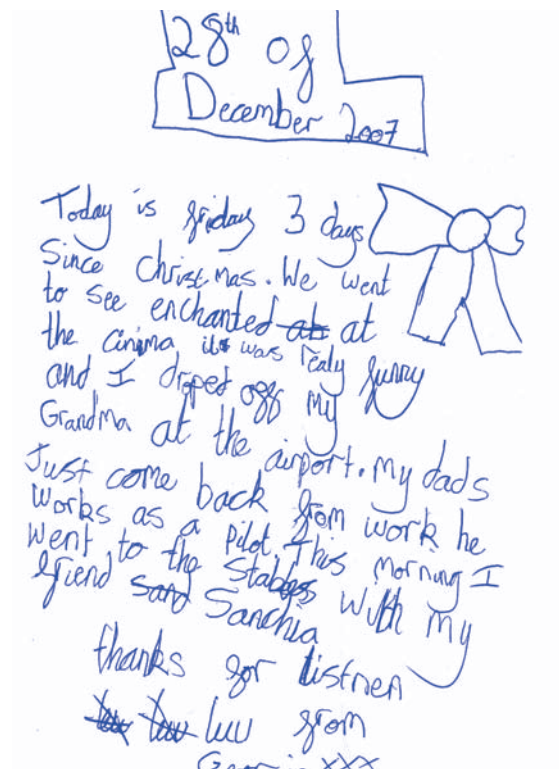 28th of
December 2007
Today is friday 3 days
Since Christmas. We went
to see enchanted ab at
the cinima it was realy funny
and I droped off my
Grandma at the airport. My dads
Just come back from work he
works as a pilot. This morning I
went to the stables with my
friend sand Sanchia
thanks for listnen
luv luv luv from
xxx